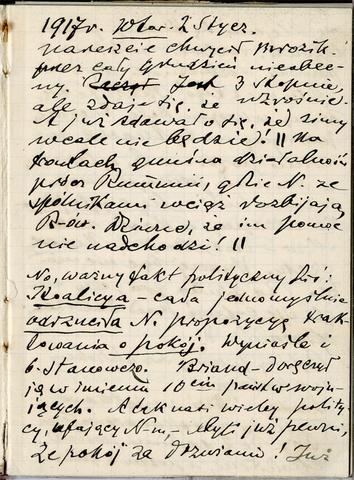 1917 r. Wtor. 2 Stycz.
nareszcie chwycił mrozik
przez cały grudzień nieobec-
ny. Jest 3 stopnie,
ale zdaje się, że wzrośnie.
A już zdawało się, że zimy
wcale nie będzie! || Na
frontach gnuśna działalność
prócz Rumunii, gdzie N. ze
spólnikami wciąż rozbijają
R-ów. Dziwne, że im pomoc
nie nadchodzi! ||
No, ważny fakt polityczny dziś:
Koalicya – cała jednomyślnie
odrzuciła N. propozycyę trak-
towania o pokój. Wyniośle i
b. stanowczo. Briand – doręczył
ją w imieniu 10ciu państw woju-
jących. A tak nasi wielcy polity-
cy, ufający N-m, – byli już pewni,
że pokój za drzwiami! Już